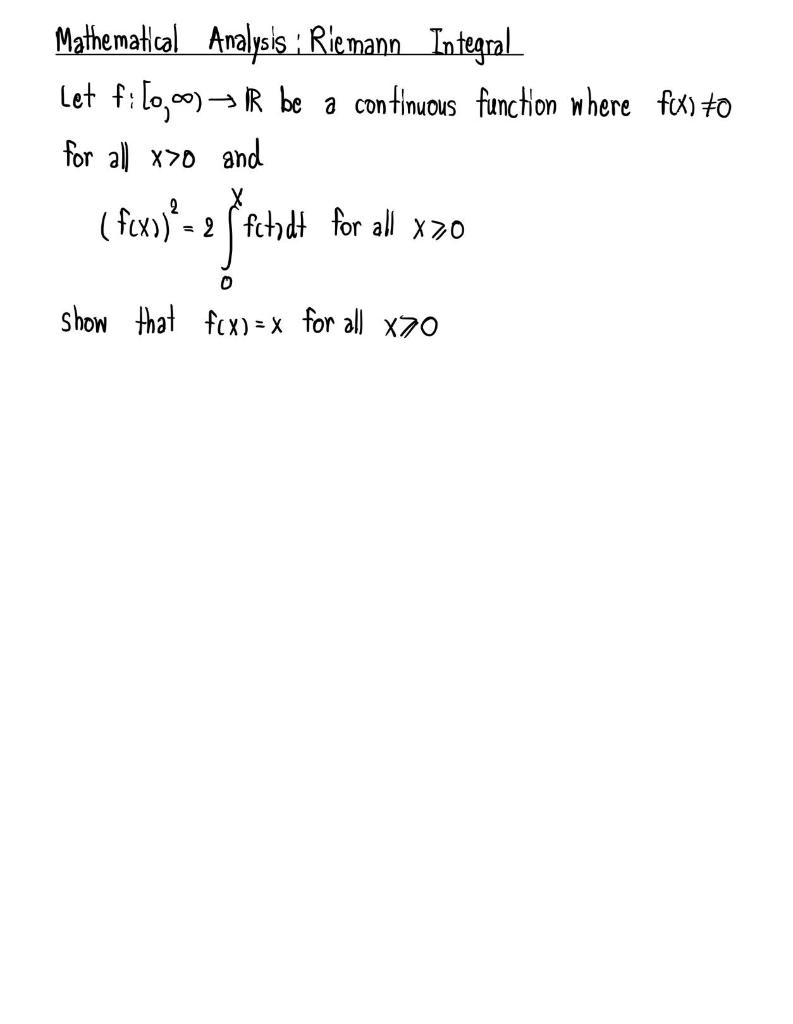 Mathematical Analysis : Riemann Integral
Let f : [0,∞) → ℝ be a continuous function where f(x) ≠ 0
for all x>0 and
(f(x))² = 2 ∫₀ˣ f(t)dt for all x ⩾ 0
show that f(x) = x for all x ⩾ 0